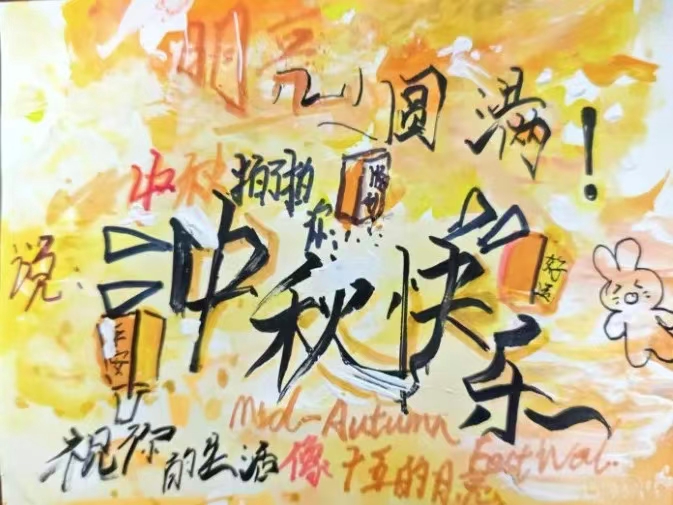 明亮
圆满！
中秋拍了拍
你....
说:
中秋快乐
平安
好运
Mid-Autumn
Festival.
祝你的生活像十五的月亮